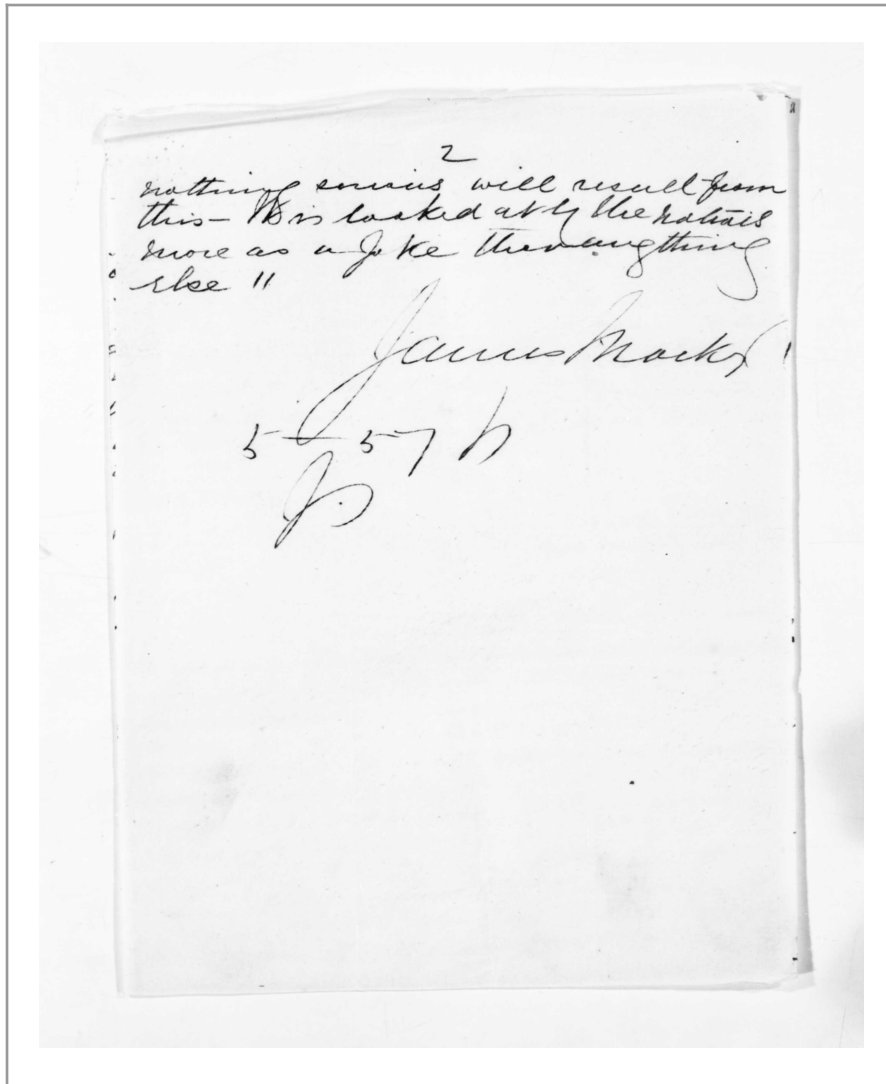 2
nothing serious will result from
this - It is looked at by the natives
more as a Joke then anything
else "
James
5 - 57